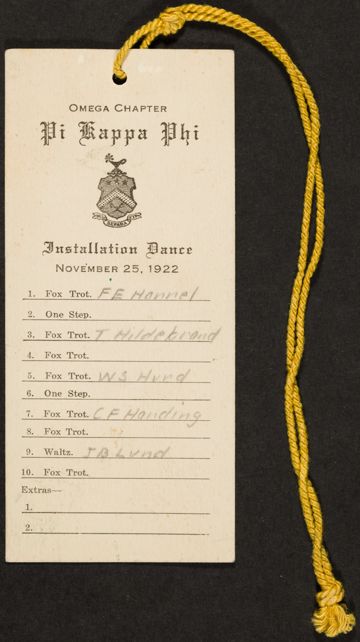 OMEGA CHAPTER
Pi Kappa Phi
Installation Dance
NOVEMBER 25, 1922
1. Fox Trot. F E Hannel
2. One Step.
3. Fox Trot. T Hildebrand
4. Fox Trot.
5. Fox Trot. W S Hurd
6. One Step.
7. Fox Trot. C F Handing
8. Fox Trot.
9. Waltz. J B Lund
10. Fox Trot.
Extras—
1.
2.